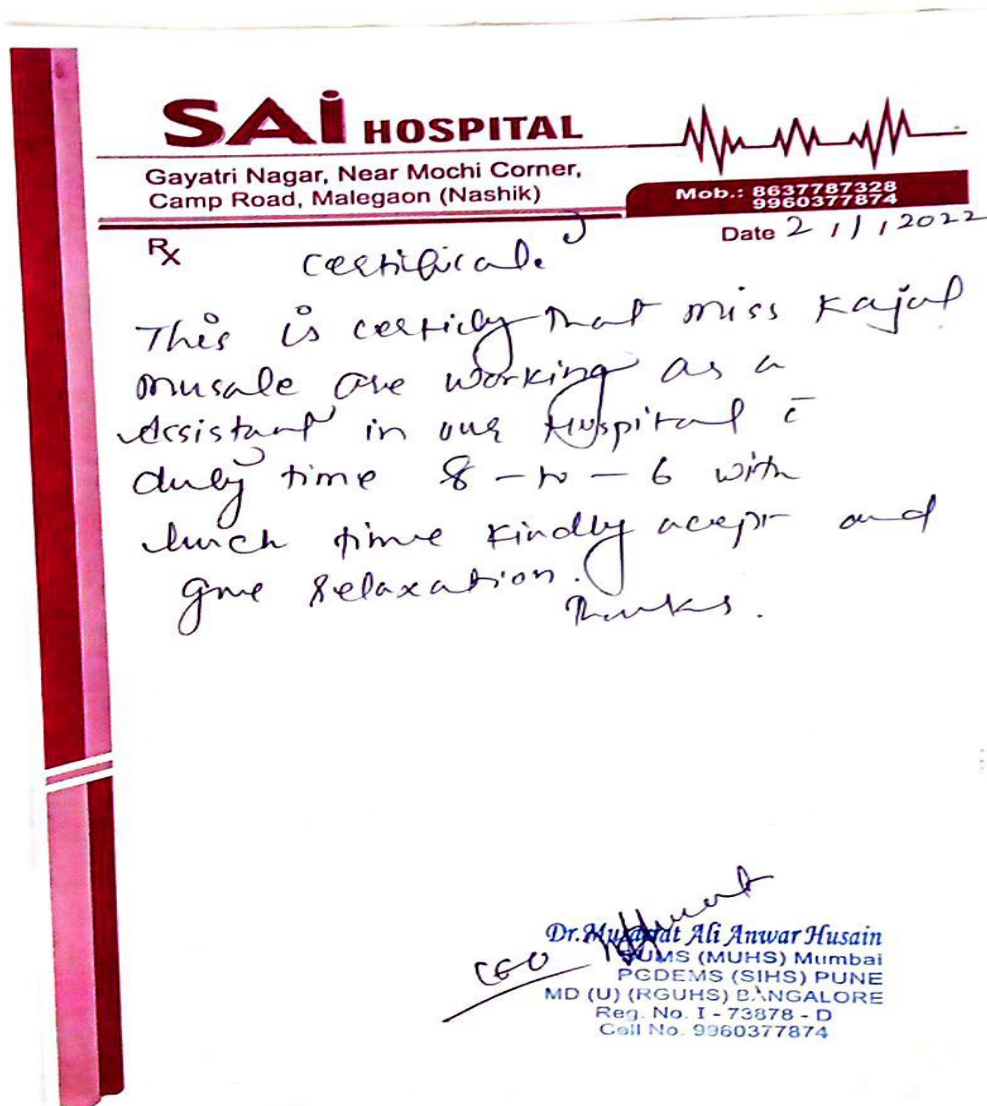 SAi HOSPITAL
Gayatri Nagar, Near Mochi Corner,
Camp Road, Malegaon (Nashik)
Mob.: 8637787328
9960377874
Rx
Date 2/1/2022
certificate
This is certify that miss Kajal
musale are working as a
Assistant in our Hospital c̄
duty time 8 - to - 6 with
lunch time kindly acept and
give relaxation.
Thanks.
CEO
Dr. Ali Anwar Husain
BUMS (MUHS) Mumbai
PGDEMS (SIHS) PUNE
MD (U) (RGUHS) BANGALORE
Reg. No. I - 73878 - D
Cell No. 9960377874